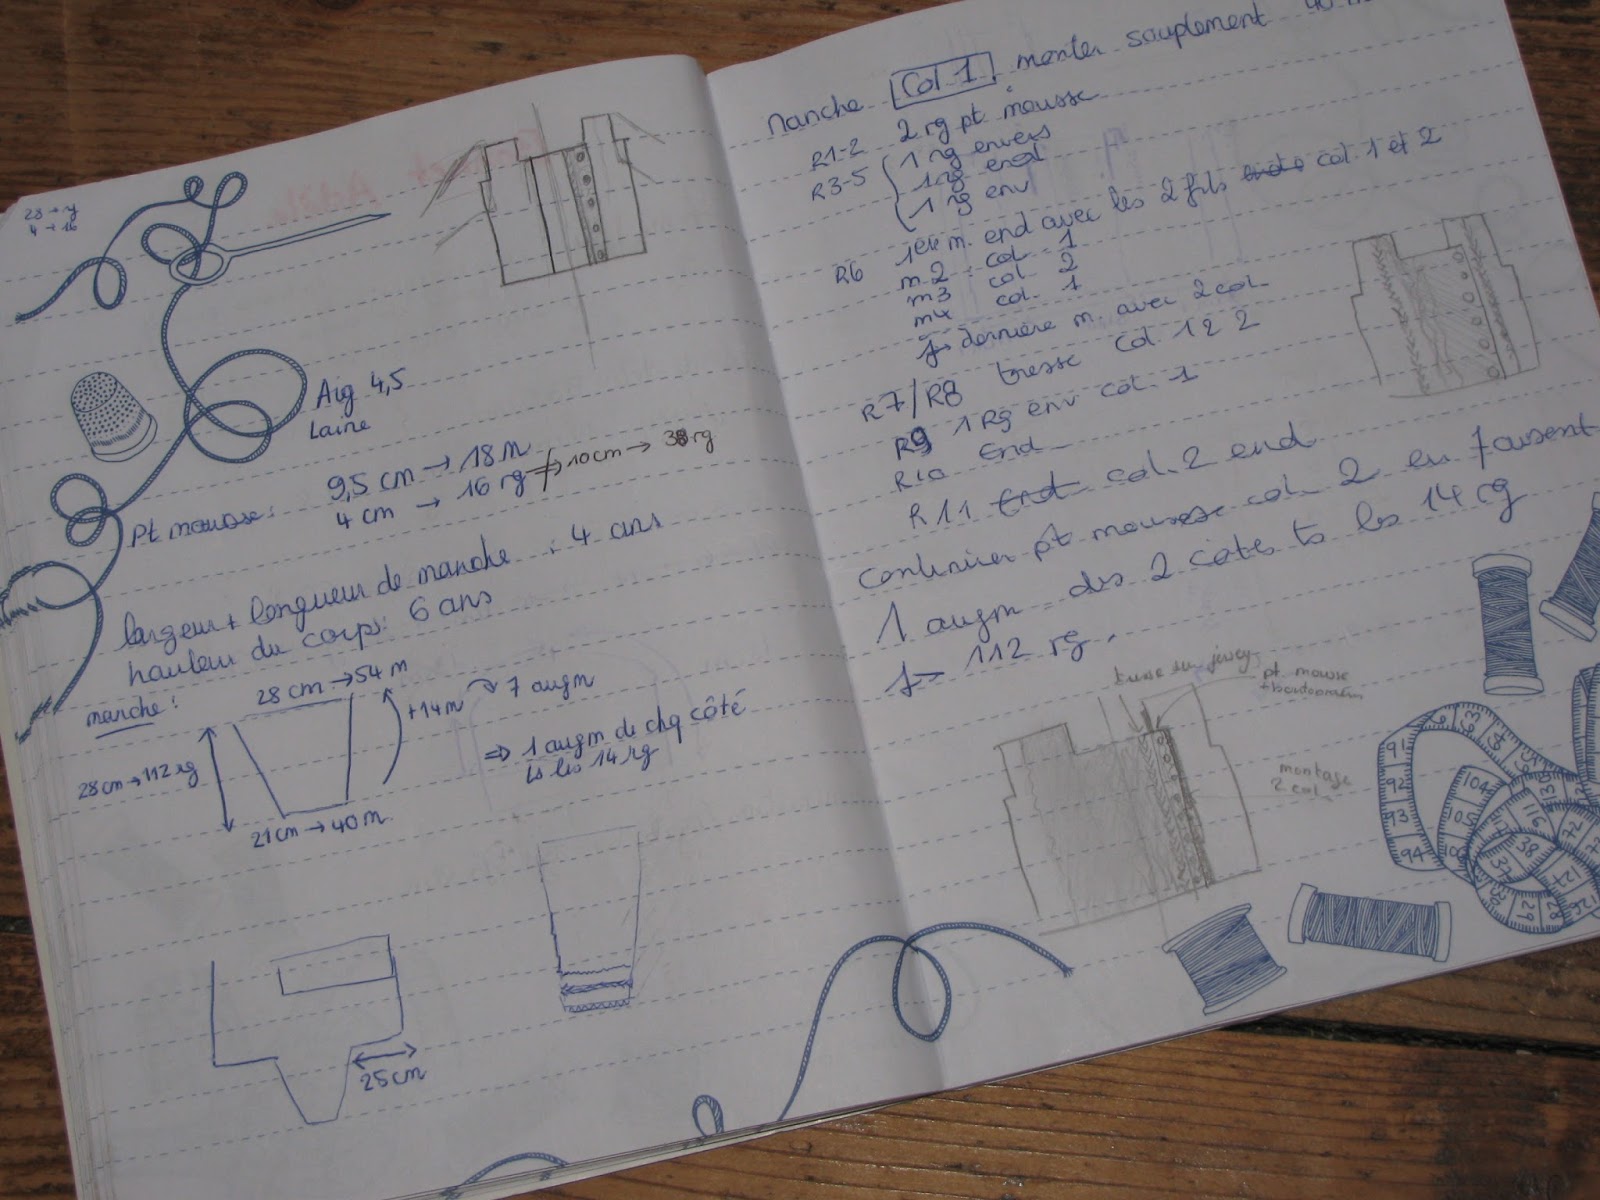 28 → y
4 → 16
Aig 4,5
Laine
Pt mousse : 9,5 cm → 18 m
4 cm → 16 rg → 10 cm → 38 rg
largeur + longueur de manche : 4 ans
hauteur du corps : 6 ans
manche :
28 cm → 54 m
+14 m → 7 augm
⇒ 1 augm de chq côté
ts les 14 rg
28 cm → 112 rg
21 cm → 40 m
25 cm
manche Col 1 monter souplement 40
R1-2 2 rg pt mousse
R3-5 1 rg envers
1 rg end
1 rg env
R6 1ère m. end avec les 2 fils col 1 et 2
m 2 col 1
m3 col 2
m4 col. 1
J → dernière m. avec 2 col
R7/R8 tresse col 1 & 2
R9 1 Rg env col. 1
R10 End
R11 End col. 2 end
continuer pt mousse col 2 en faisant
1 augm des 2 cotés ts les 14 rg
J → 112 rg.
tresse sur jersey
pt mousse
montage
2 col.
91
92
93
94
104
116
38